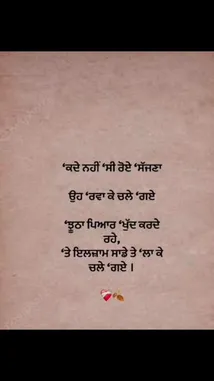 ‘ਕਦੇ ਨਹੀਂ ‘ਸੀ ਰੋਏ ‘ਸੱਜਣਾ
ਉਹ ‘ਰਵਾ ਕੇ ਚਲੇ ‘ਗਏ
‘ਝੂਠਾ ਪਿਆਰ ‘ਖੁੱਦ ਕਰਦੇ
ਰਹੇ,
‘ਤੇ ਇਲਜ਼ਾਮ ਸਾਡੇ ਤੇ ‘ਲਾ ਕੇ
ਚਲੇ ‘ਗਏ ।
❤️‍🩹🍂